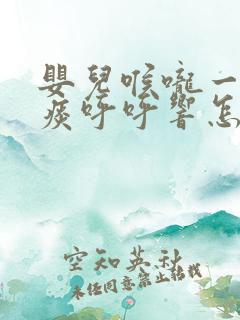 嬰兒喉嚨一
痰呼呼響怎
空知英秋
未经同意禁止转载